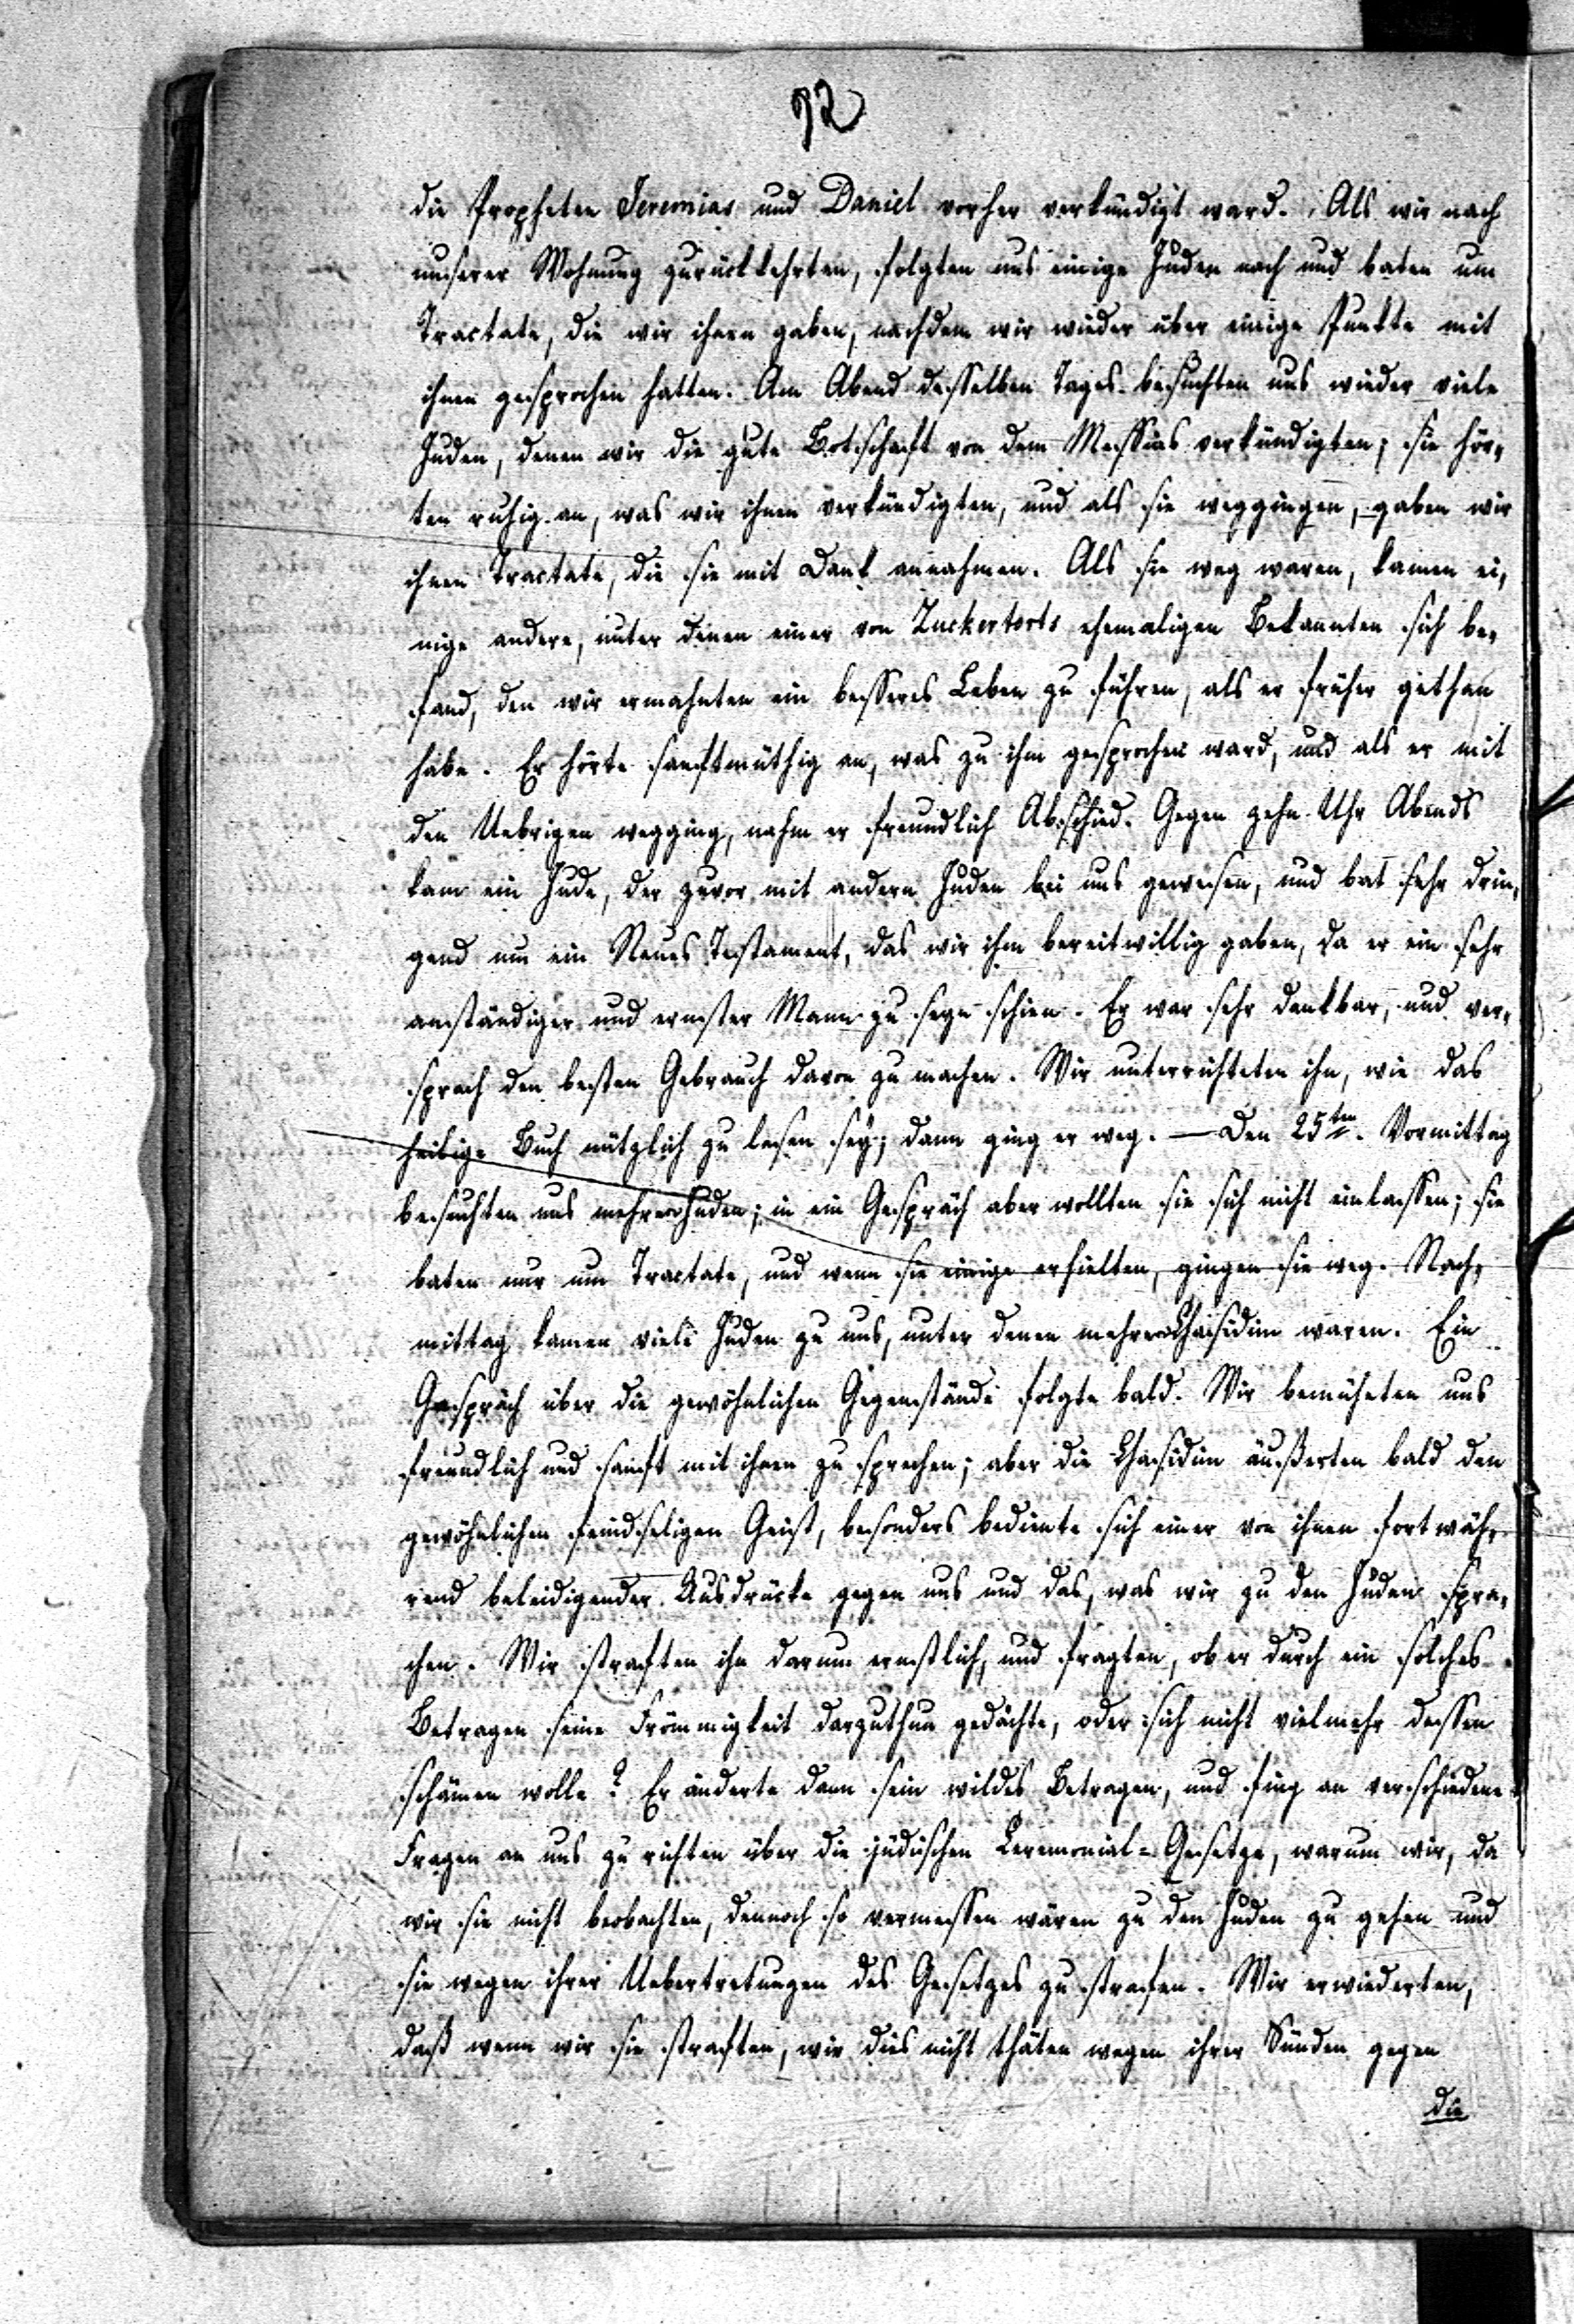 92
die Propheten Jeremias und Daniel vorher verkündigt ward. Als wir nach
unserer Wohnung zurückkehrten, folgten uns einige Juden nach und baten um
Tractate, die wir ihnen gaben, nachdem wir wieder über einige Punkte mit
ihnen gesprochen hatten. Am Abend desselben Tages besuchten uns wieder viele
Juden, denen wir die gute Botschaft von dem Messias verkündigten; sie hör,
ten ruhig an, was wir ihnen verkündigten, und als sie weggingen, gaben wir
ihnen Tractate, die sie mit Dank annahmen. Als sie weg waren, kamen ei,
nige andere, unter denen einer von Zuckertorts ehemaligen Bekannten sich be,
fand, den wir ermahnten ein besseres Leben zu führen, als er früher gethan
habe. Er hörte sanftmüthig an, was zu ihm gesprochen ward, und als er mit
den Uebrigen wegging, nahm er freundlich Abschied. Gegen zehn Uhr Abends
kam ein Jude, der zuvor mit andern Juden bei uns gewesen, und bat sehr drin,
gend um ein Neues Testament, das wir ihm bereitwillig gaben, da er ein sehr
anständiger und ernster Mann zu seyn schien. Er war sehr dankbar, und ver,
sprach den besten Gebrauch davon zu machen. Wir unterrichteten ihn, wie das
heilige Buch nützlich zu lesen sey; dann ging er weg. — Den 25ten. Vormittag
besuchten uns mehrere Juden; in ein Gespräch aber wollten sie sich nicht einlassen; sie
baten nur um Tractate, und wenn sie einige erhielten, gingen sie weg. Nach,
mittag kamen viele Juden zu uns, unter denen mehrere Chasidim waren. Ein
Gespräch über die gewöhnlichen Gegenstände folgte bald. Wir bemüheten uns
freundlich und sanft mit ihnen zu sprechen; aber die Chasidim äußerten bald den
gewöhnlichen feindseligen Geist, besonders bediente sich einer von ihnen fortwäh,
rend beleidigender Ausdrücke gegen uns und das, was wir zu den Juden spra,
chen. Wir straften ihn darum ernstlich, und fragten, ob er durch ein solches
Betragen seine Frömmigkeit darzuthun gedächte, oder sich nicht vielmehr dessen
schämen wolle? Er änderte dann sein wildes Betragen, und fing an verschiedene
Fragen an uns zu richten über die jüdischen Ceremonial-Gesetze, warum wir, da
wir sie nicht beobachten, dennoch so vermessen wären zu den Juden zu gehen und
sie wegen ihrer Uebertretungen des Gesetzes zu strafen. Wir erwiederten,
daß wenn wir sie straften, wir dies nicht thäten wegen ihrer Sünden gegen
die